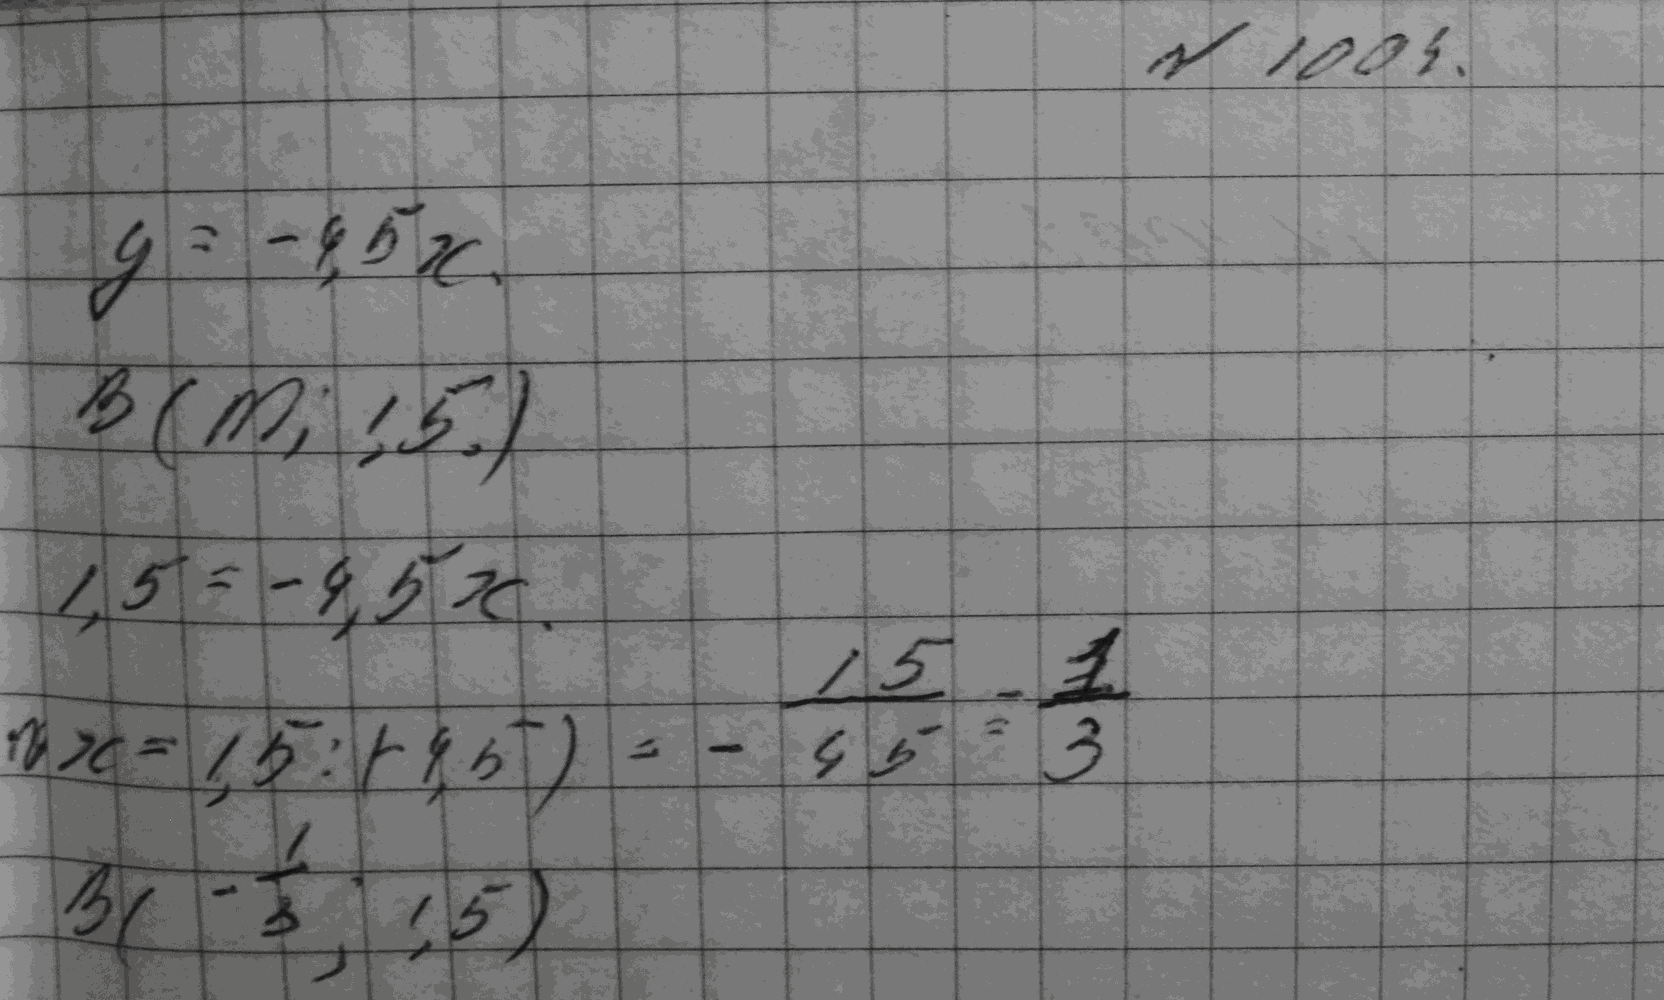 № 1004.
y = -4,5x.
B(m; 1,5.)
1,5 = -4,5x.
x = 1,5:(-4,5) = - 15/45 = - 1/3
B(-1/3; 1,5)